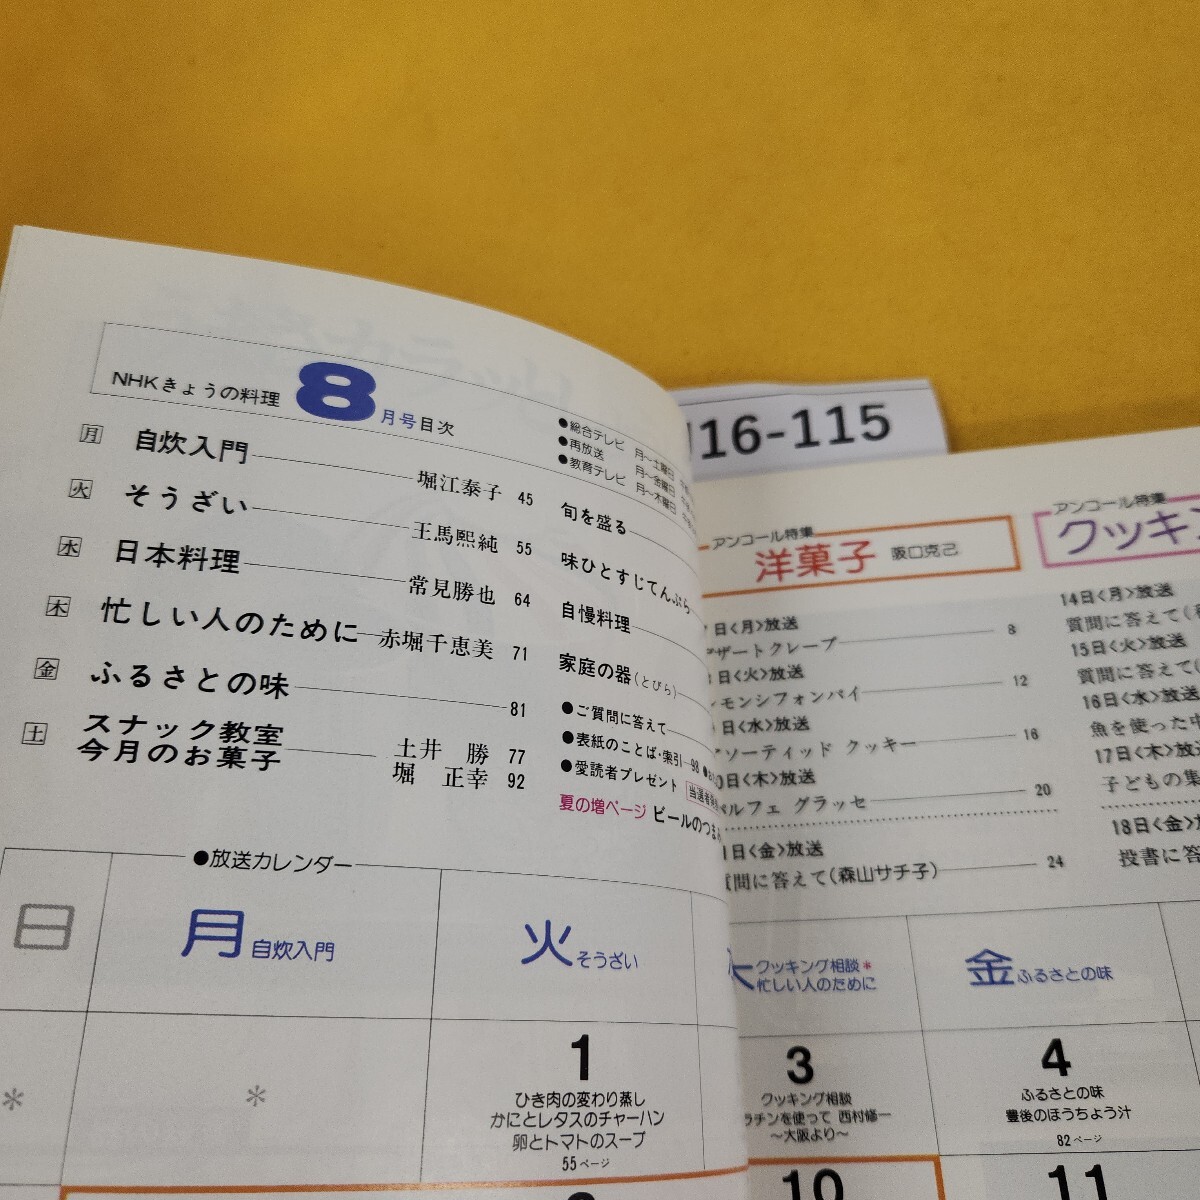 NHKきょうの料理 8月号目次
●総合テレビ 月〜土曜日
●再放送 月〜金曜日
●教育テレビ 月〜木曜日
月 自炊入門 堀江泰子 45
火 そうざい 王馬熙純 55
水 日本料理 常見勝也 64
木 忙しい人のために 赤堀千恵美 71
金 ふるさとの味 81
土 スナック教室 土井 勝 77
今月のお菓子 堀 正幸 92
旬を盛る
味ひとすじてんぷら
自慢料理
家庭の器(とびら)
●ご質問に答えて
●表紙のことば・索引 98
●愛読者プレゼント
夏の増ページ ビールのつまみ
16-115
アンコール特集
洋菓子 阪口克己
日<月>放送
デザートクレープ 8
日<火>放送
レモンシフォンパイ 12
日<水>放送
アソーティッド クッキー 16
0日<木>放送
パルフェ グラッセ 20
1日<金>放送
質問に答えて(森山サチ子) 24
アンコール特集
クッキン
14日<月>放送
質問に答えて(
15日<火>放送
質問に答えて(
16日<水>放送
魚を使った中
17日<木>放送
子どもの集
18日<金>放送
投書に答
●放送カレンダー
日
月 自炊入門
火 そうざい
木 クッキング相談*
忙しい人のために
金 ふるさとの味
*
*
1
ひき肉の変わり蒸し
かにとレタスのチャーハン
卵とトマトのスープ
55ページ
3
クッキング相談
ラチンを使って 西村修一
〜大阪より〜
4
ふるさとの味
豊後のほうちょう汁
82ページ
10
11